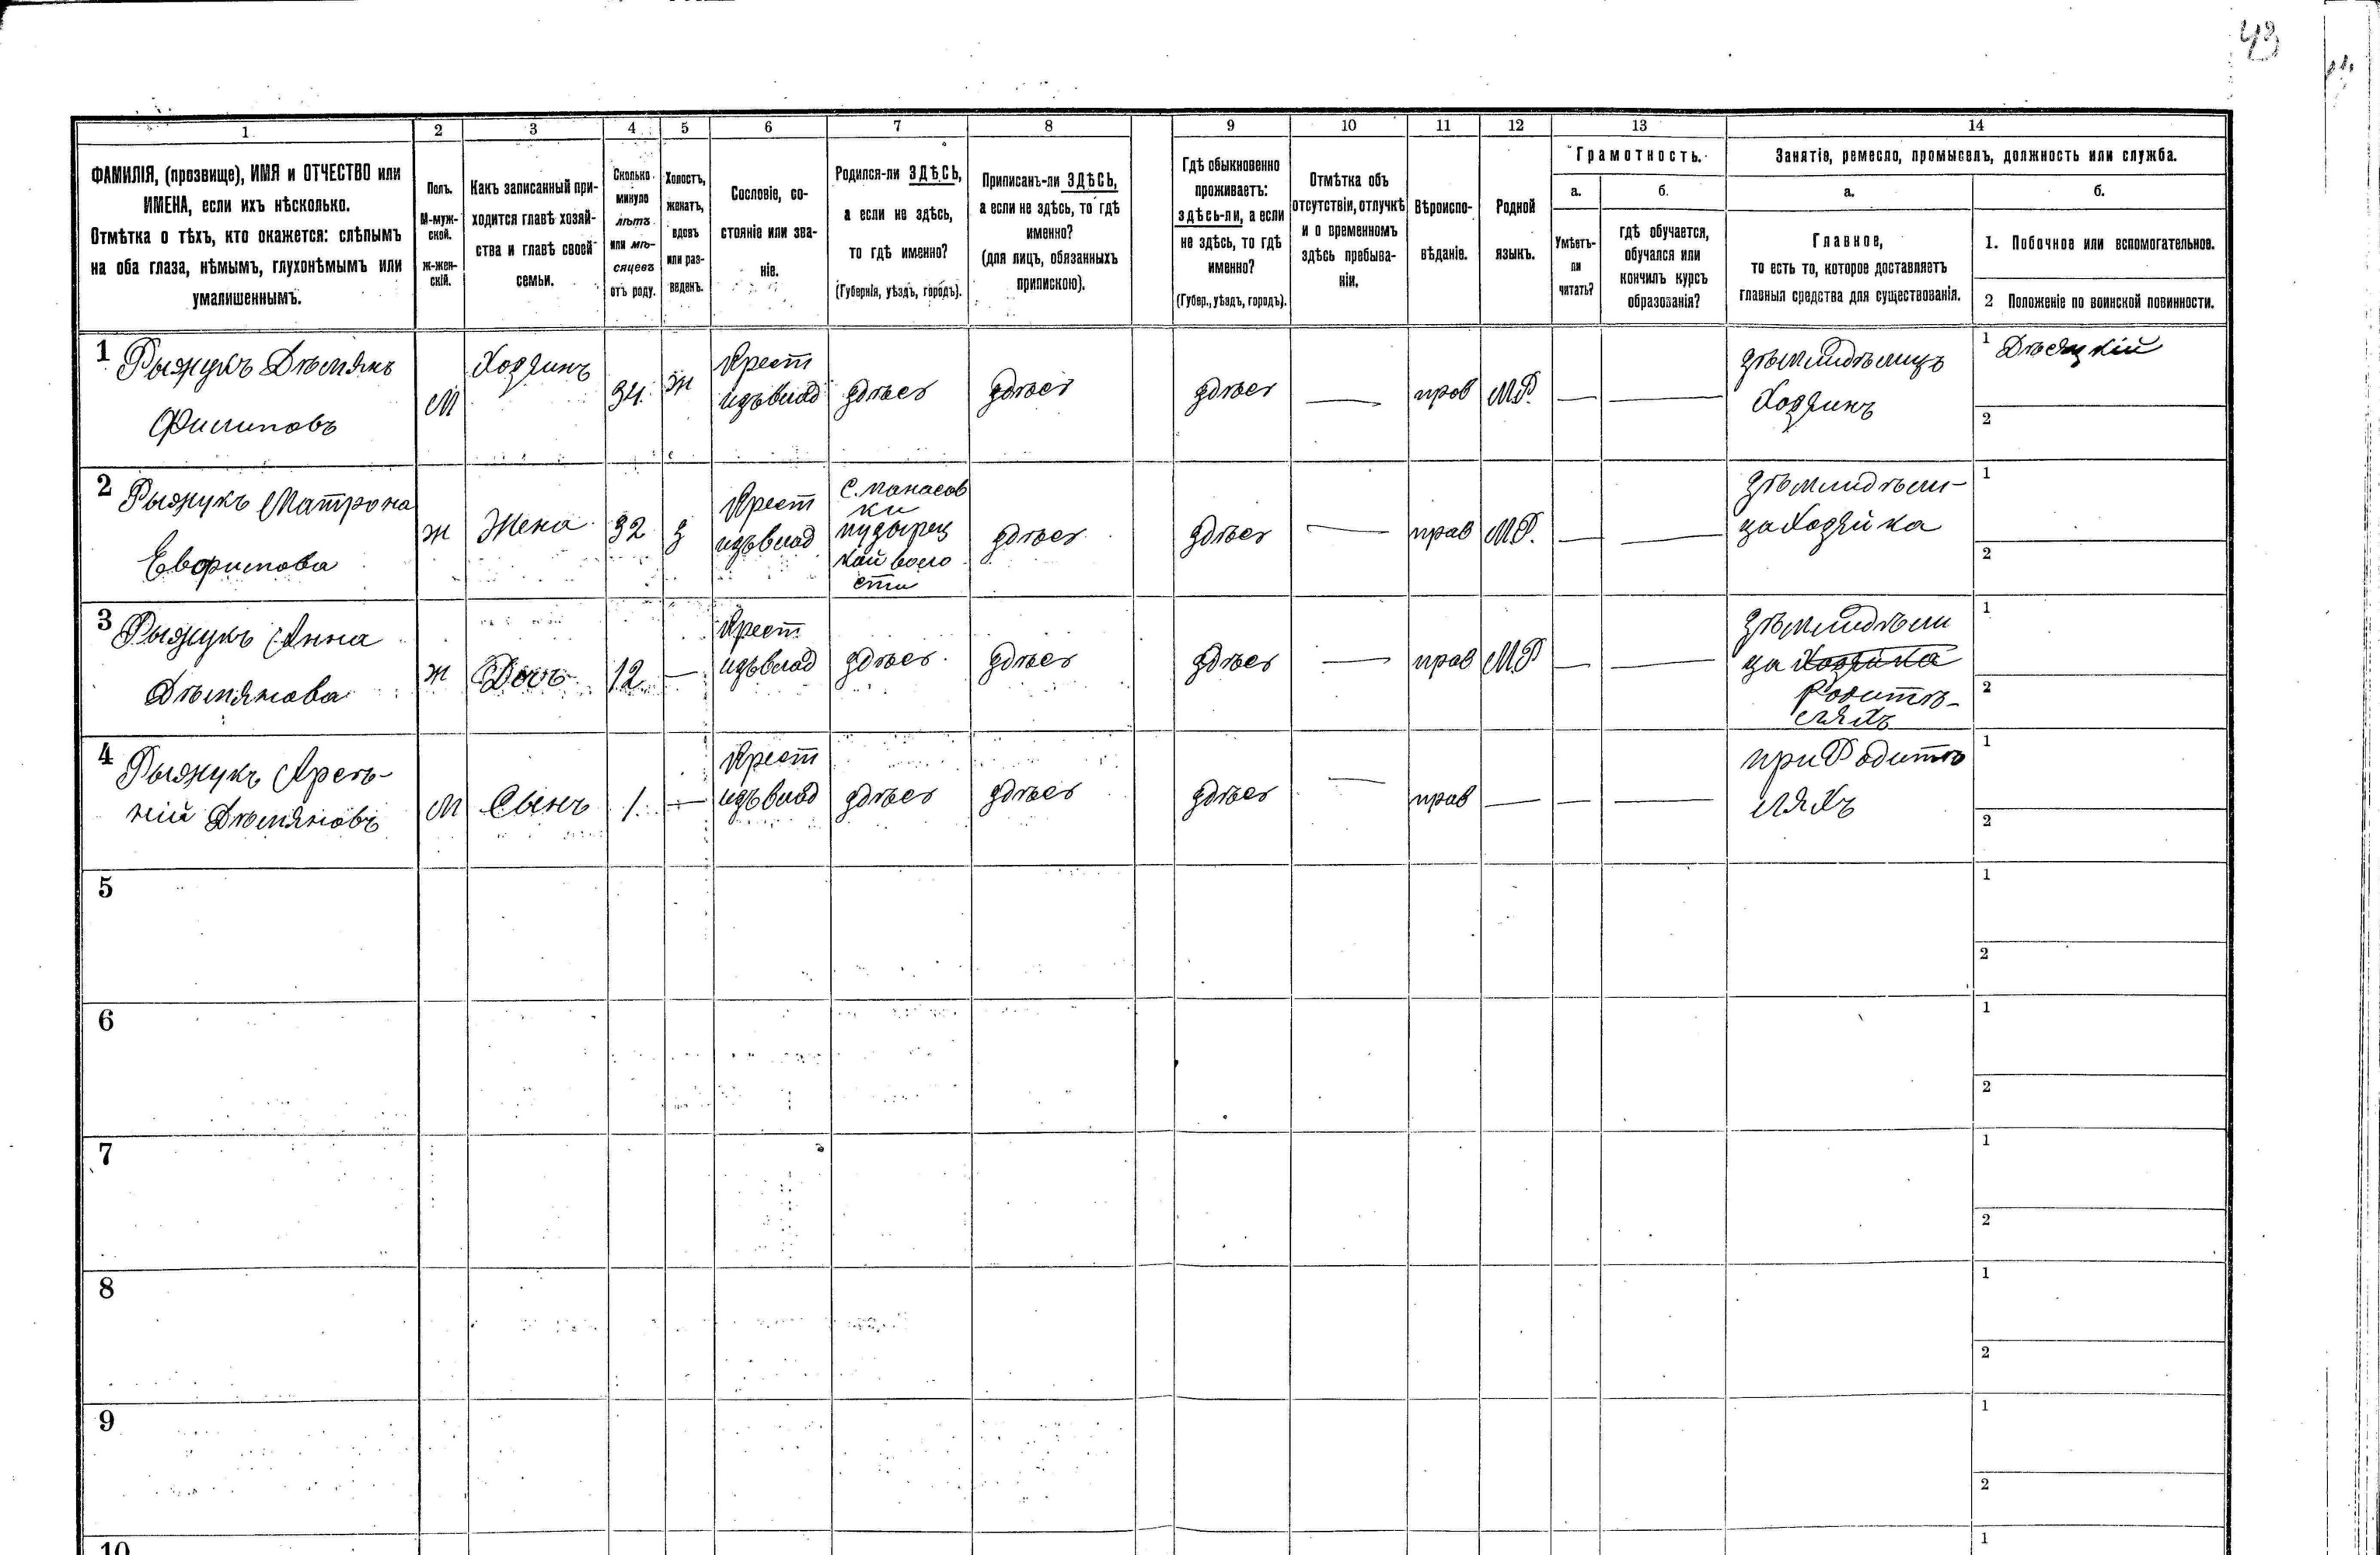 43
1 2 3 4 5 6 7 8 9 10 11 12 13 14
ФАМИЛІЯ, (прозвище), ИМЯ и ОТЧЕСТВО или
ИМЕНА, если ихъ нѣсколько.
Отмѣтка о тѣхъ, кто окажется: слѣпымъ
на оба глаза, нѣмымъ, глухонѣмымъ или
умалишеннымъ.
Полъ.
М-муж-
ской.
ж-жен-
скій.
Какъ записанный при-
ходится главѣ хозяй-
ства и главѣ своей
семьи.
Сколько
минуло
лѣтъ
или мѣ-
сяцевъ
отъ роду.
Холостъ,
женатъ,
вдовъ
или раз-
веденъ.
Сословіе, со-
стояніе или зва-
ніе.
Родился-ли ЗДѢСЬ,
а если не здѣсь,
то гдѣ именно?
(Губернія, уѣздъ, городъ).
Приписанъ-ли ЗДѢСЬ,
а если не здѣсь, то гдѣ
именно?
(для лицъ, обязанныхъ
припискою).
Гдѣ обыкновенно
проживаетъ:
здѣсь-ли, а если
не здѣсь, то гдѣ
именно?
(Губер., уѣздъ, городъ).
Отмѣтка объ
отсутствіи, отлучкѣ
и о временномъ
здѣсь пребыва-
ніи.
Вѣроиспо-
вѣданіе.
Родной
языкъ.
Грамотность.
а.
Умѣетъ-
ли
читать?
б.
гдѣ обучается,
обучался или
кончилъ курсъ
образованія?
Занятіе, ремесло, промыселъ, должность или служба.
а.
Главное,
то есть то, которое доставляетъ
главныя средства для существованія.
б.
1. Побочное или вспомогательное.
2 Положеніе по воинской повинности.
1
Рыжукъ Дѣмянъ
Филиповъ
М
Хозяинъ
34
ж
Крест
изъ влад
здѣсь
здѣсь
здѣсь
—
прав
МР.
—
—
зѣмлидѣлицъ
Хозяинъ
1 Дѣсяцкій
2
2
Рыжукъ Матрона
Евфимова
ж
Жена
32
з
Крест
изъ влад
С. манасов
ки
пузырец
кой воло
сти
здѣсь
здѣсь
—
прав
МР.
—
—
зѣмлидѣли-
ца Хозяйка
1
2
3
Рыжукъ Анна
Дѣмянова
ж
Дочь
12
—
Крест
изъ влад
здѣсь
здѣсь
здѣсь
—
прав
МР
—
—
зѣмлидѣли
ца Хозяйка
Родитѣ-
ляхъ
1
2
4
Рыжукъ Арсѣ-
ній Дѣмяновъ
М
Сынъ
1.
—
Крест
изъ влад
здѣсь
здѣсь
здѣсь
—
прав
—
—
—
при Родитѣ
ляхъ
1
2
5
1
2
6
1
2
7
1
2
8
1
2
9
1
2
10
1